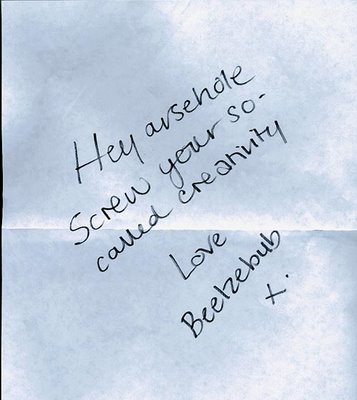 Hey arsehole
Screw your so-
called creativity
Love
Beelzebub
x.